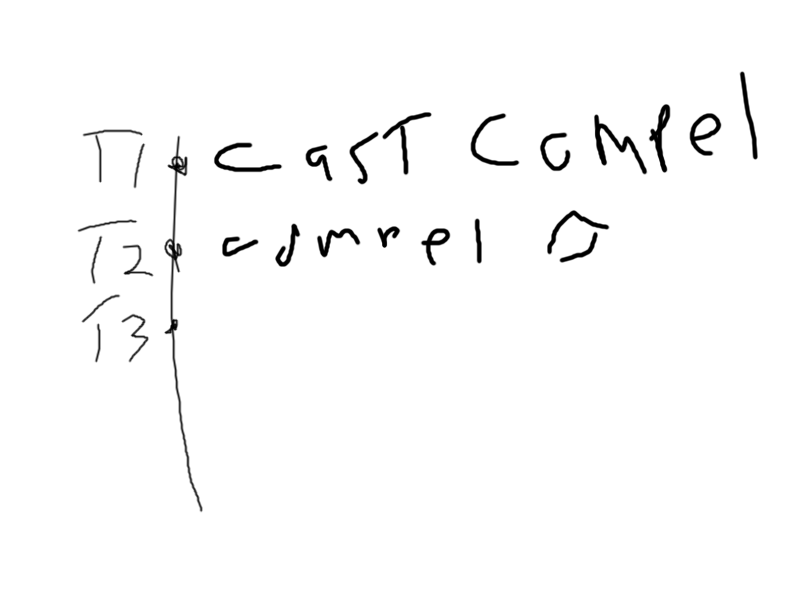 T1 CAST Compel
T2 compel
T3